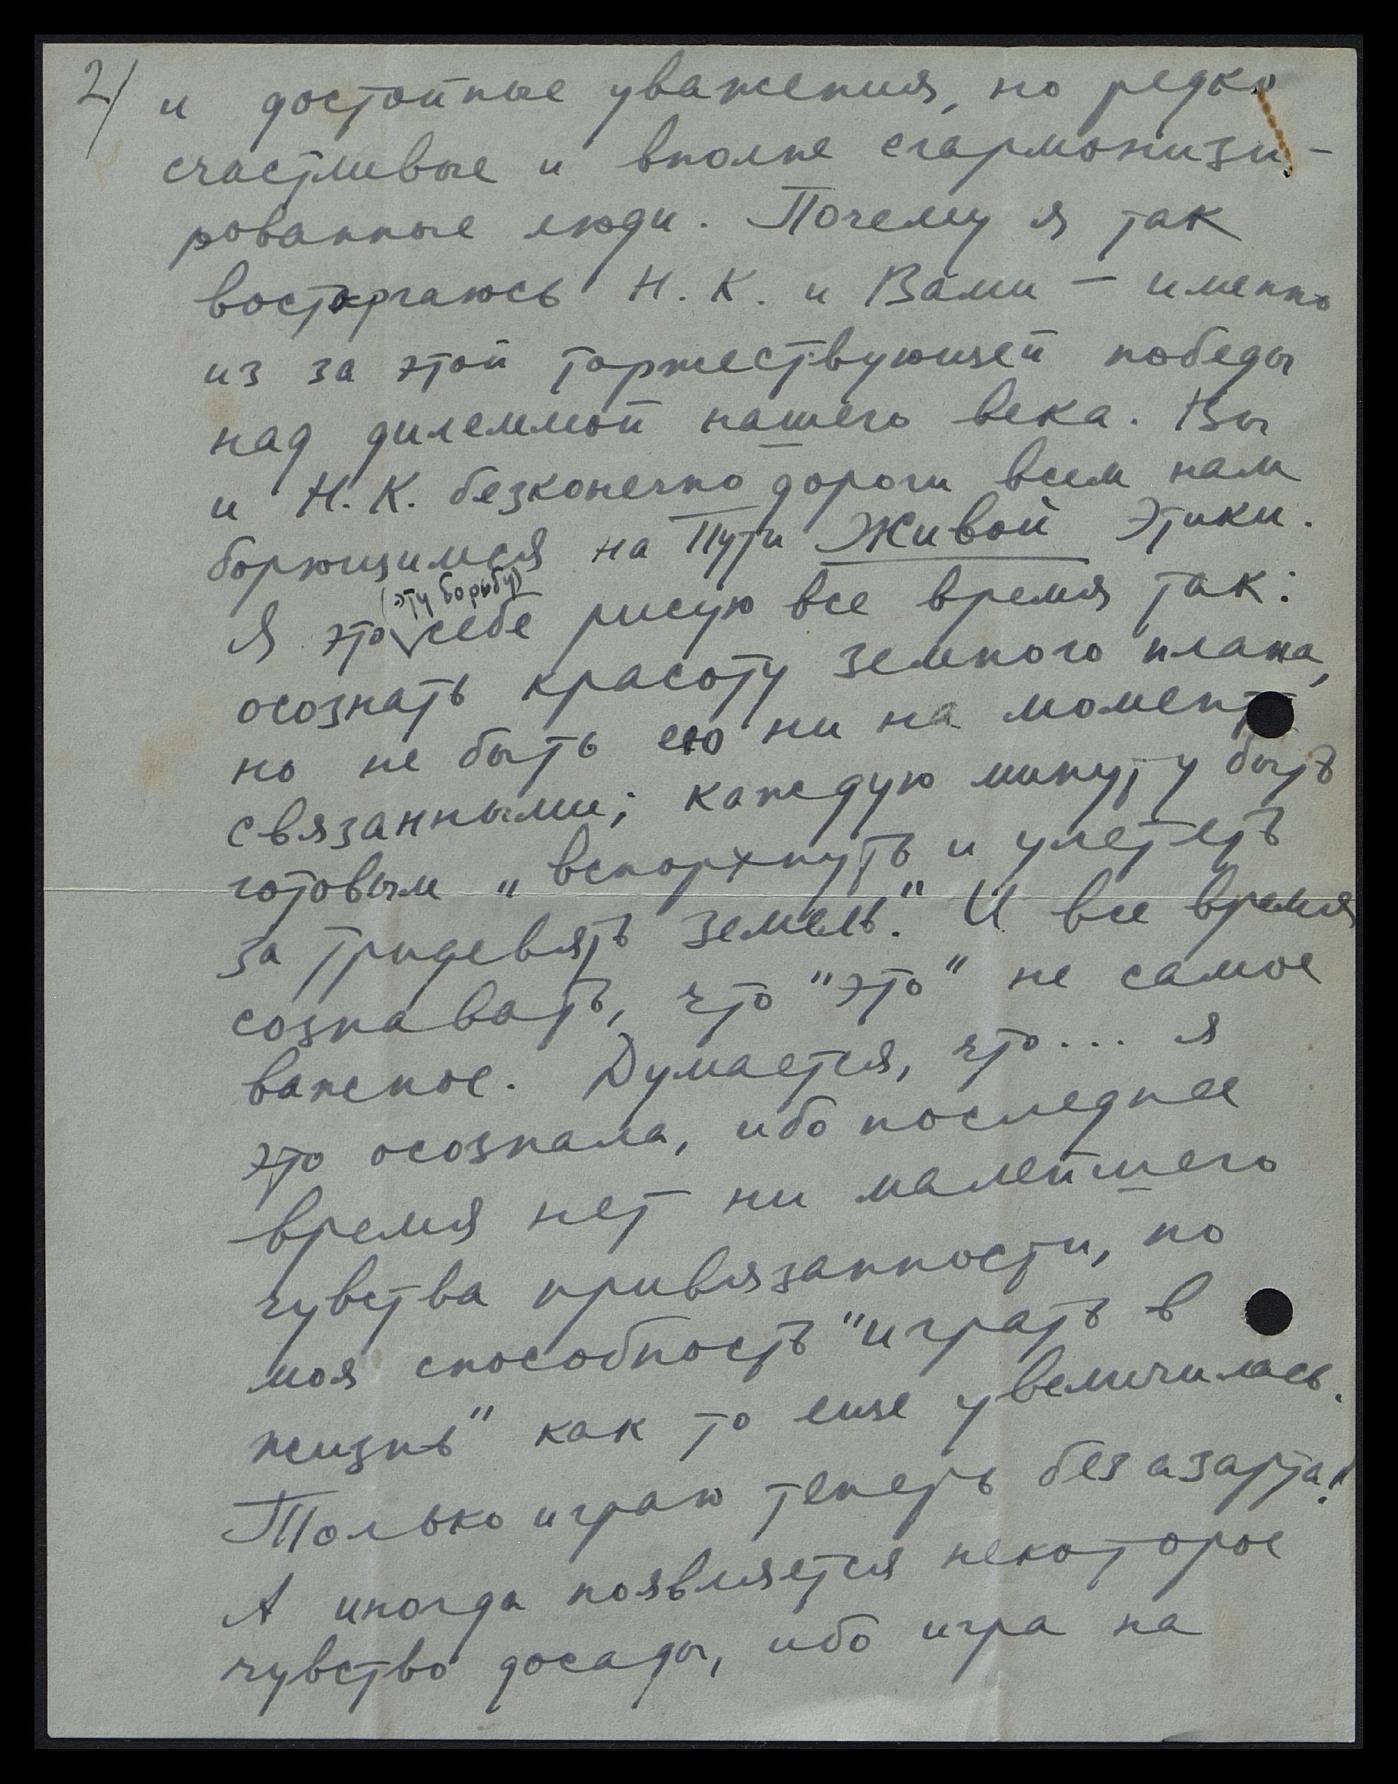 2/ и достойные уважения, но редко
счастливые и вполне сгармонизи-
рованные люди. Почему я так
восторгаюсь Н. К. и Вами – именно
из за этой торжествующей победы
над дилеммой нашего века. Вы
и Н. К. безконечно дороги всем нам
борющимся на Пути Живой Этики.
(эту борьбу)
Я это себе рисую все время так:
осознать красоту земного плана,
но не быть ею ни на момент
связанными; каждую минуту быть
готовым „вспорхнуть и улететь
за тридевять земель." И все время
сознавать, что "это" не самое
важное. Думается, что... я
это осознала, ибо последнее
время нет ни малейшего
чувства привязанности, но
моя способность "играть в
жизнь" как то еще увеличилась.
Только играю теперь без азарта!
А иногда появляется некоторое
чувство досады, ибо игра на